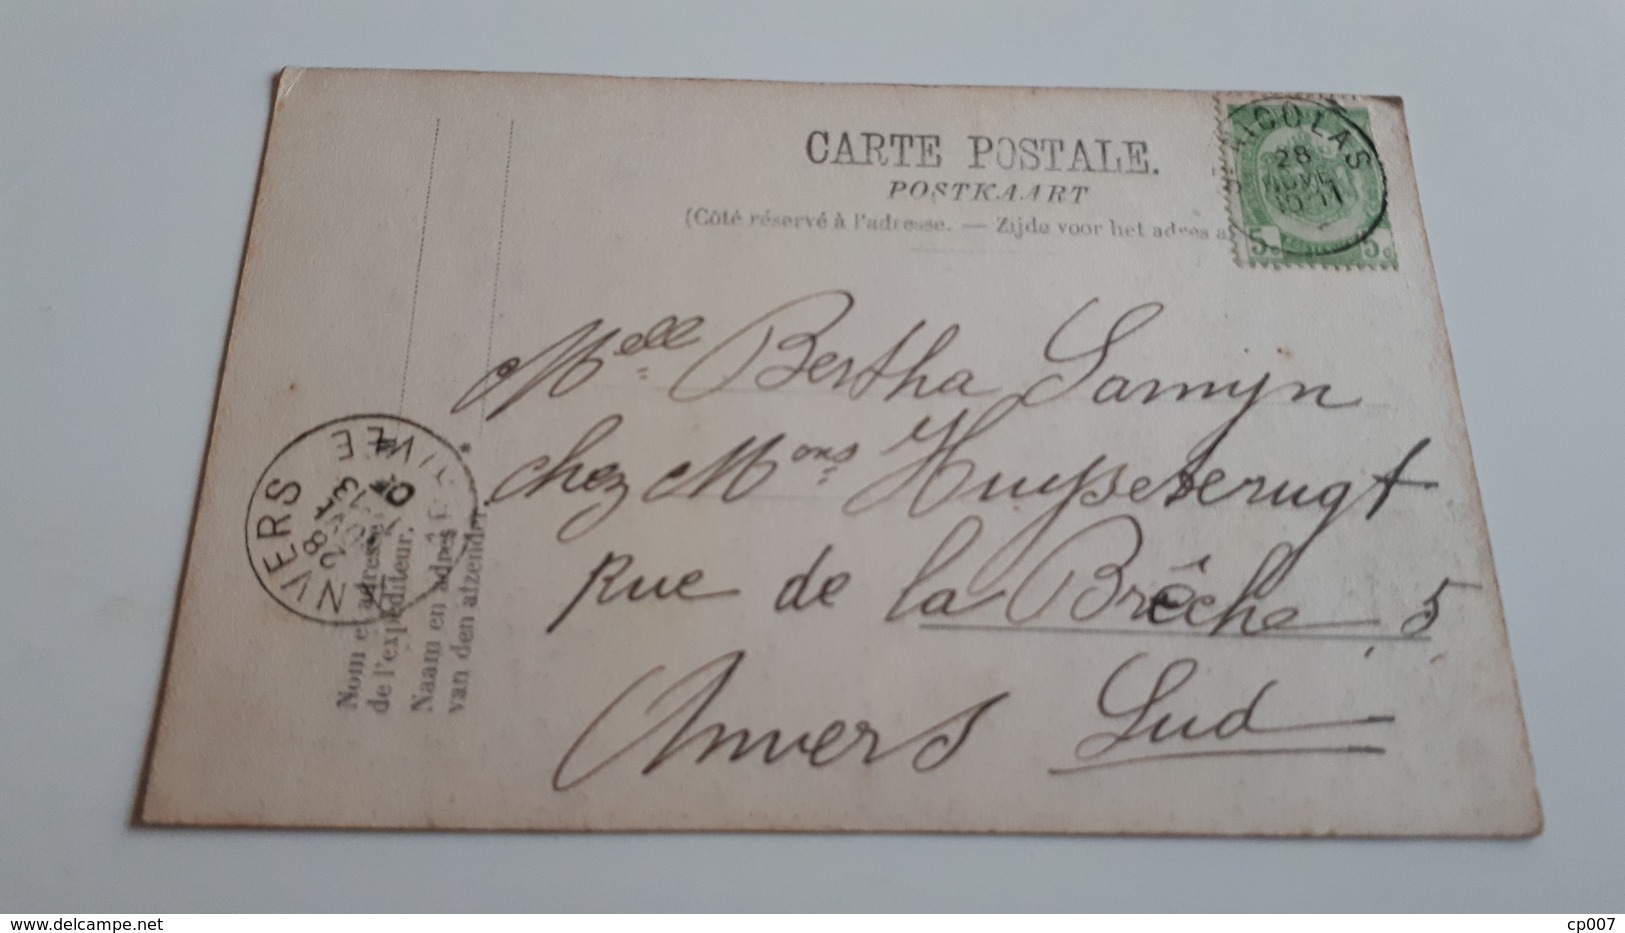 CARTE POSTALE.
POSTKAART
(Côté réservé à l'adresse. — Zijde voor het adres
NICOLAS
28
NOVE
5c 5c
Melle Bertha Samyn
chez Mons Huyseterugt
Rue de la Brêche 5
Anvers Sud
NVERS
28
Nom et adresse
de l'expéditeur.
Naam en adres
van den afzender.
www.delcampe.net
cp007